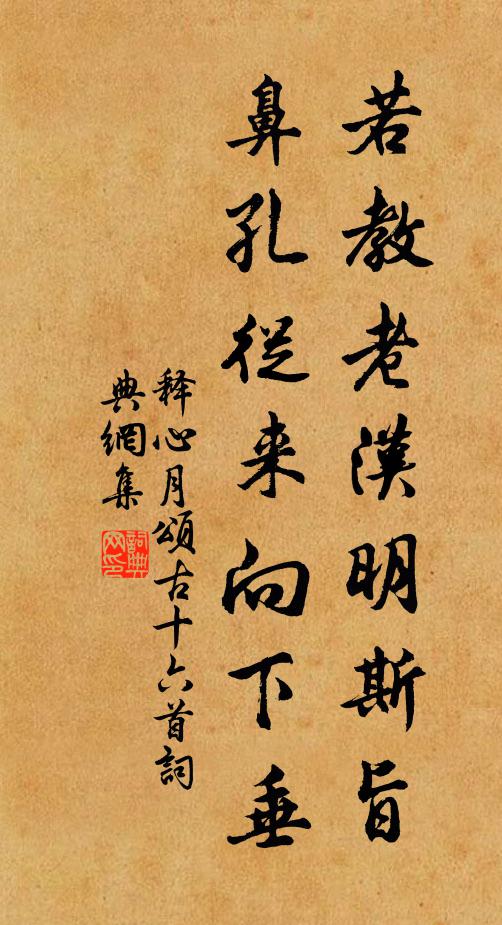 若教老漢明斯旨
鼻孔從来向下垂
释心月頌古十六首詞
典網集
詞典
网印